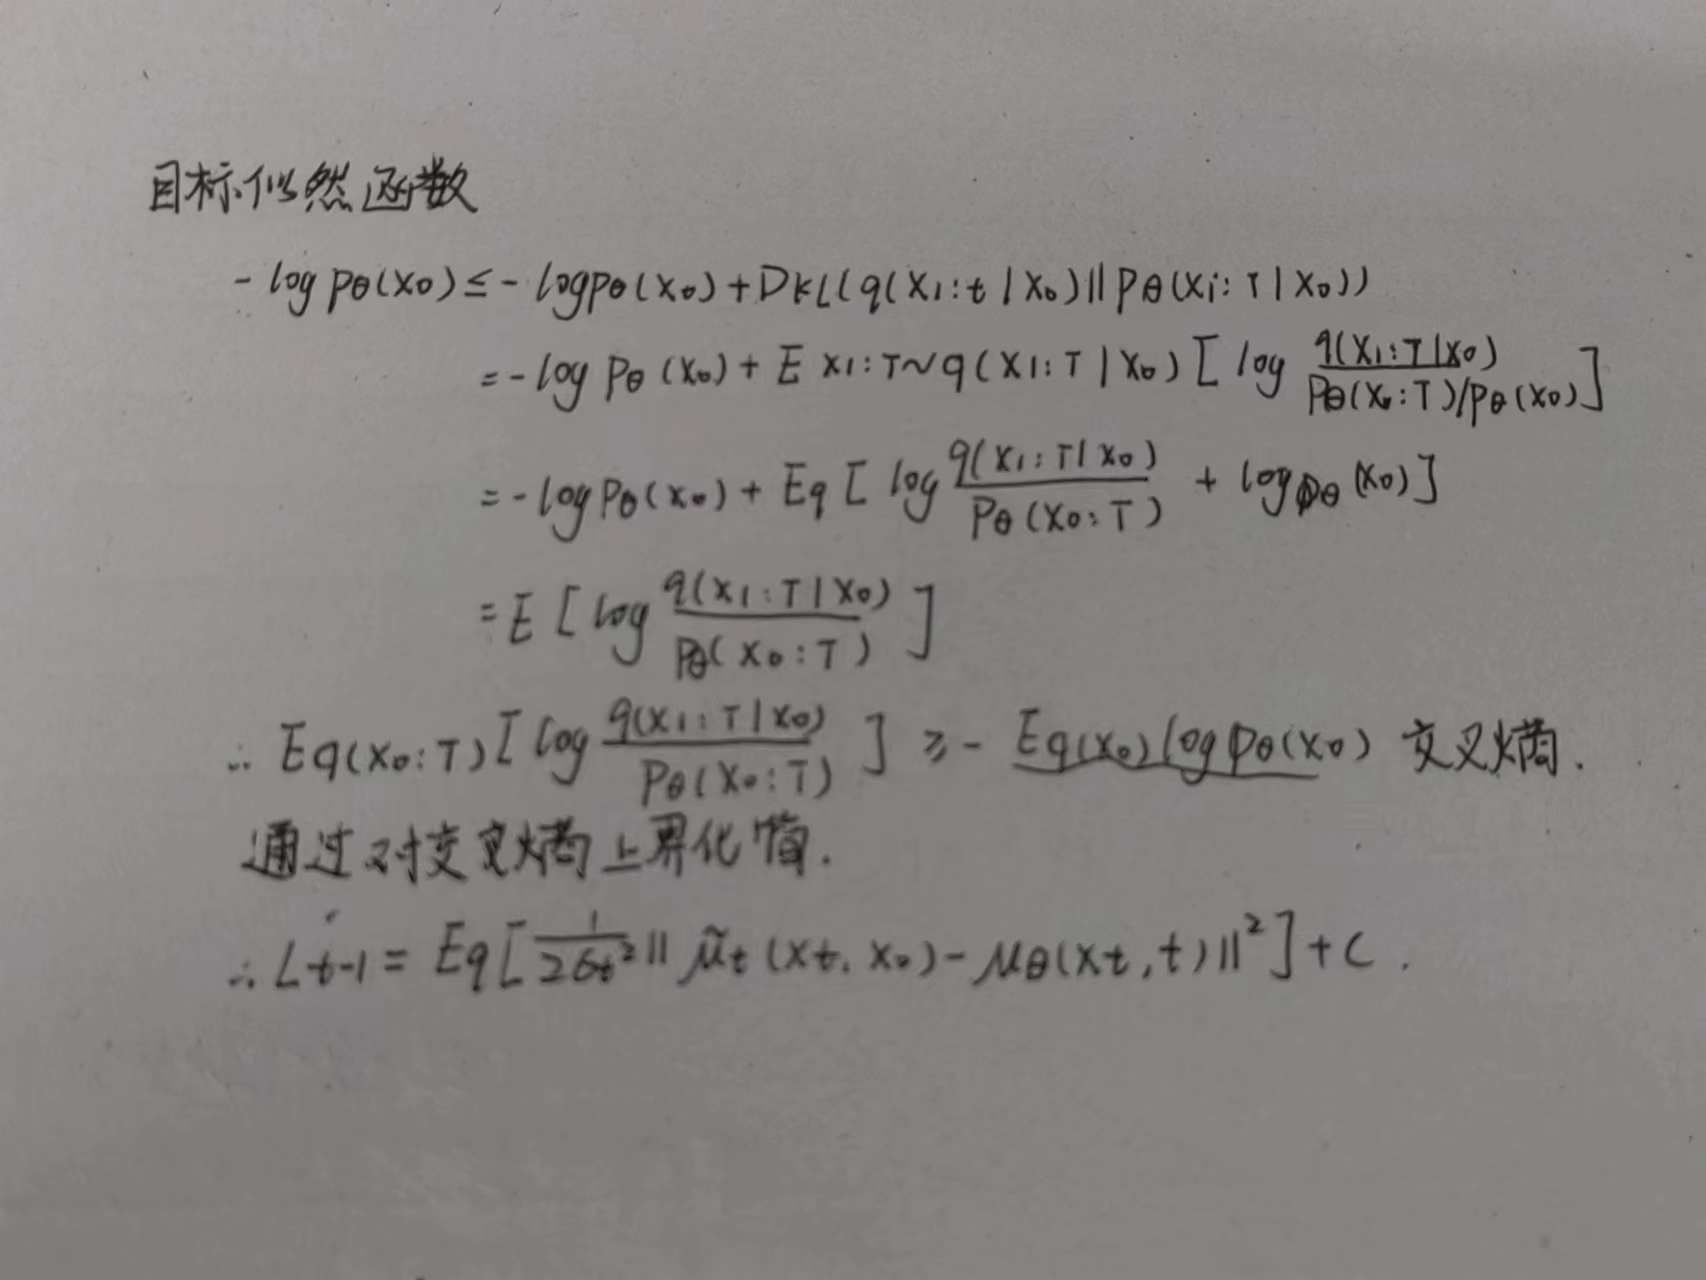 目标似然函数
-log pθ(x0) ≤ -log pθ(x0) + DKL(q(x1:t|x0)||pθ(xi:T|x0))
= -log pθ(x0) + E x1:T~q(x1:T|x0) [log q(x1:T|x0) / pθ(x0:T)/pθ(x0)]
= -log pθ(x0) + Eq [log q(x1:T|x0) / pθ(x0:T) + log pθ(x0)]
= E [log q(x1:T|x0) / pθ(x0:T)]
∴ Eq(x0:T) [log q(x1:T|x0) / pθ(x0:T)] ≥ -Eq(x0) log pθ(x0) 交叉熵.
通过对交叉熵上界化简.
∴ Lt-1 = Eq[1/2σt² || μ̃t(xt, x0) - μθ(xt, t)||²] + C.